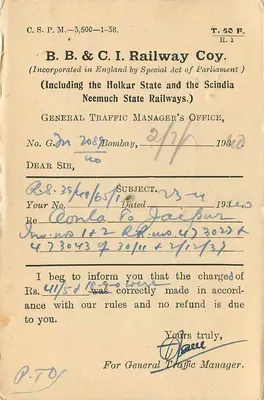 C. S. P. M.—3,500—1-38.
T. 50 F.
R. 1
B. B. & C. I. Railway Coy.
(Incorporated in England by Special Act of Parliament)
(Including the Holkar State and the Scindia
Neemuch State Railways.)
GENERAL TRAFFIC MANAGER'S OFFICE,
No. G. 2089 Bombay, 2/7/ 193
40
DEAR SIR,
R.S. 39/49/65/1
SUBJECT.
Your No. Dated 23-4 193
Re Aonla To Jaipur
Inv. nos 1 & 2 R.R. nos. 473027 &
473043 of 30/11 & 2/12/37
I beg to inform you that the charge of
Rs. 41/5 & 18-20 were correctly made in accord-
ance with our rules and no refund is due
to you.
Yours truly,
For General Traffic Manager.
P.T.O